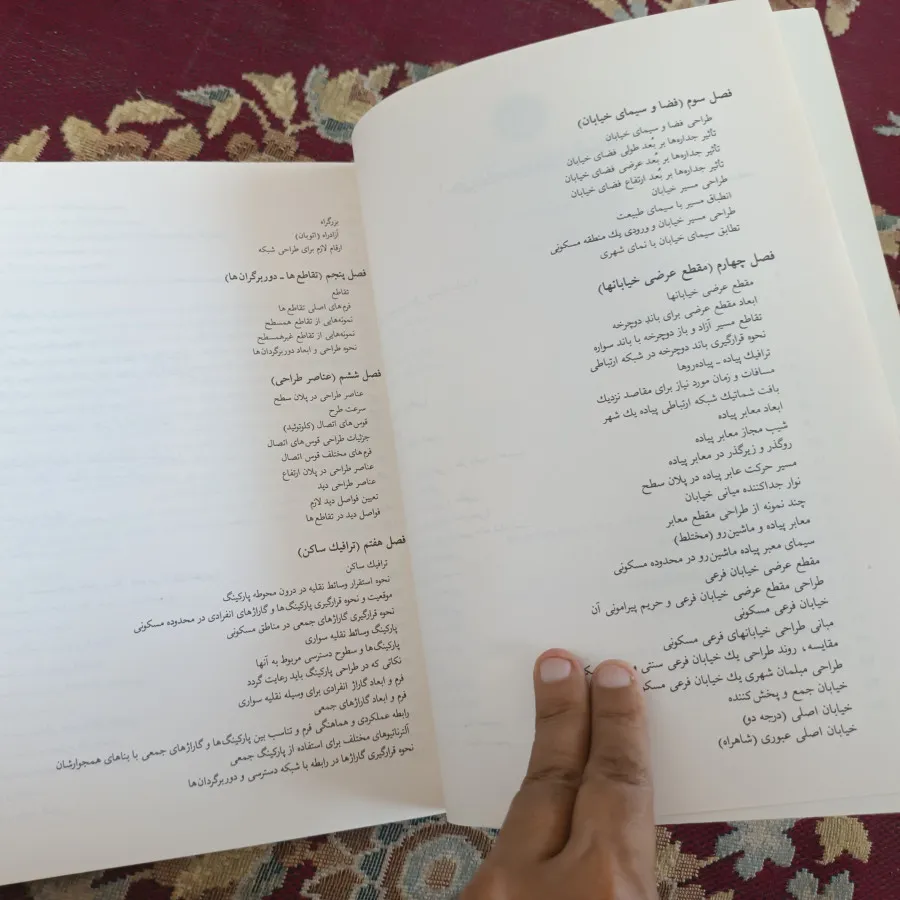 فصل سوم (فضا و سیمای خیابان)
طراحی فضا و سیمای خیابان
تأثیر جداره‌ها بر بُعد طولی فضای خیابان
تأثیر جداره‌ها بر بُعد عرضی فضای خیابان
تأثیر جداره‌ها بر بُعد ارتفاع فضای خیابان
طراحی مسیر خیابان
انطباق مسیر با سیمای طبیعت
طراحی مسیر خیابان و ورودی یک منطقه مسکونی
تطابق سیمای خیابان با نمای شهری
فصل چهارم (مقطع عرضی خیابانها)
مقطع عرضی خیابانها
ابعاد مقطع عرضی برای باند دوچرخه
تقاطع مسیر آزاد و باز دوچرخه با باند سواره
نحوه قرارگیری باند دوچرخه در شبکه ارتباطی
ترافیک پیاده ـ پیاده‌روها
مسافات و زمان مورد نیاز برای مقاصد نزدیک
بافت شماتیک شبکه ارتباطی پیاده یک شهر
ابعاد معابر پیاده
شیب مجاز معابر پیاده
روگذر و زیرگذر در معابر پیاده
مسیر حرکت عابر پیاده در پلان سطح
نوار جداکننده میانی خیابان
چند نمونه از طراحی مقطع معابر
معابر پیاده و ماشین‌رو (مختلط)
سیمای معبر پیاده ماشین‌رو در محدوده مسکونی
مقطع عرضی خیابان فرعی
طراحی مقطع عرضی خیابان فرعی و حریم پیرامونی آن
خیابان فرعی مسکونی
مبانی طراحی خیابانهای فرعی مسکونی
مقایسه، روند طراحی یک خیابان فرعی سنتی و
طراحی مبلمان شهری یک خیابان فرعی
خیابان جمع و پخش کننده
خیابان اصلی (درجه دو)
خیابان اصلی عبوری (شاهراه)
بزرگراه
آزادراه (اتوبان)
ارقام لازم برای طراحی شبکه
فصل پنجم (تقاطع ها ـ دوربرگران ها)
تقاطع
فرم‌های اصلی تقاطع ها
نمونه‌هایی از تقاطع همسطح
نمونه‌هایی از تقاطع غیرهمسطح
نحوه طراحی و ابعاد دوربرگردان‌ها
فصل ششم (عناصر طراحی)
عناصر طراحی در پلان سطح
سرعت طرح
قوس‌های اتصال (کلوتوئید)
جزئیات طراحی قوس‌های اتصال
فرم‌های مختلف قوس اتصال
عناصر طراحی در پلان ارتفاع
عناصر طراحی دید
تعیین فواصل دید لازم
فواصل دید در تقاطع ها
فصل هفتم (ترافیک ساکن)
ترافیک ساکن
نحوه استقرار وسائط نقلیه در درون محوطه پارکینگ
موقعیت و نحوه قرارگیری پارکینگ‌ها و گاراژهای انفرادی در محدوده مسکونی
نحوه قرارگیری گاراژهای جمعی در مناطق مسکونی
پارکینگ وسائط نقلیه سواری
پارکینگ‌ها و سطوح دسترسی مربوط به آنها
نکاتی که در طراحی پارکینگ باید رعایت گردد
فرم و ابعاد گاراژ انفرادی برای وسیله نقلیه سواری
فرم و ابعاد گاراژهای جمعی
رابطه عملکردی و هماهنگی فرم و تناسب بین پارکینگ‌ها و گاراژهای جمعی با بناهای همجوارشان
آلترناتیوهای مختلف برای استفاده از پارکینگ جمعی
نحوه قرارگیری گاراژها در رابطه با شبکه دسترسی و دوربرگردان‌ها